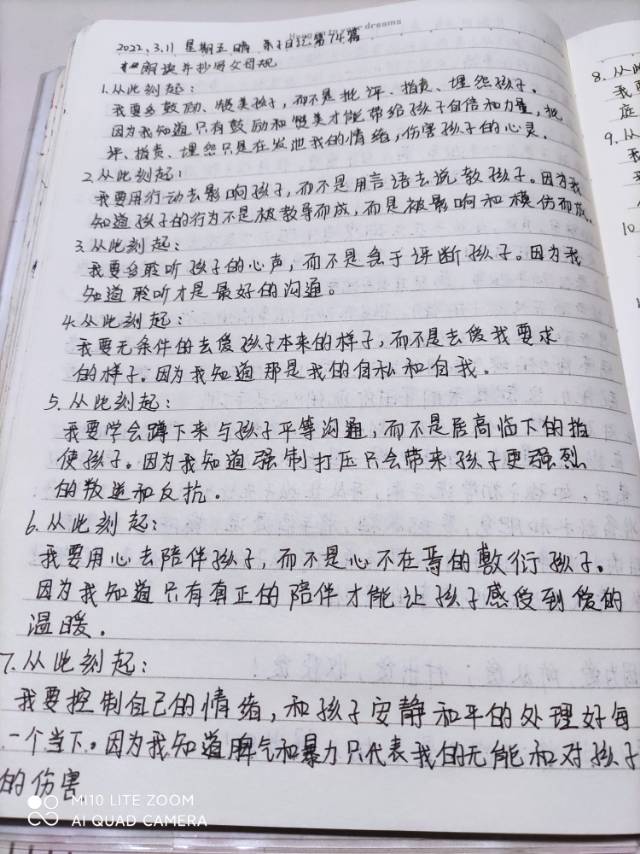 dreams
2022.3.11 星期五 晴 亲子日记第74篇
解读并抄写父母规
1.从此刻起:
我要多鼓励、赞美孩子,而不是批评、指责、埋怨孩子。
因为我知道只有鼓励和赞美才能带给孩子自信和力量,批
评、指责、埋怨只是在发泄我的情绪,伤害孩子的心灵。
2.从此刻起:
我要用行动去影响孩子,而不是用言语去说教孩子。因为我
知道孩子的行为不是被教导而成,而是被影响和模仿而成。
3.从此刻起:
我要多聆听孩子的心声,而不是急于评断孩子。因为我
知道聆听才是最好的沟通。
4.从此刻起:
我要无条件的去爱孩子本来的样子,而不是去爱我要求
的样子。因为我知道那是我的自私和自我。
5.从此刻起:
我要学会蹲下来与孩子平等沟通,而不是居高临下的指
使孩子。因为我知道强制打压只会带来孩子更强烈
的叛逆和反抗。
6.从此刻起:
我要用心去陪伴孩子,而不是心不在焉的敷衍孩子。
因为我知道只有真正的陪伴才能让孩子感受到爱的
温暖。
7.从此刻起:
我要控制自己的情绪,和孩子安静和平的处理好每
一个当下。因为我知道脾气和暴力只代表我的无能和对孩子
的伤害
8.从此
我
庭
9.从
10.
MI 10 LITE ZOOM
AI QUAD CAMERA